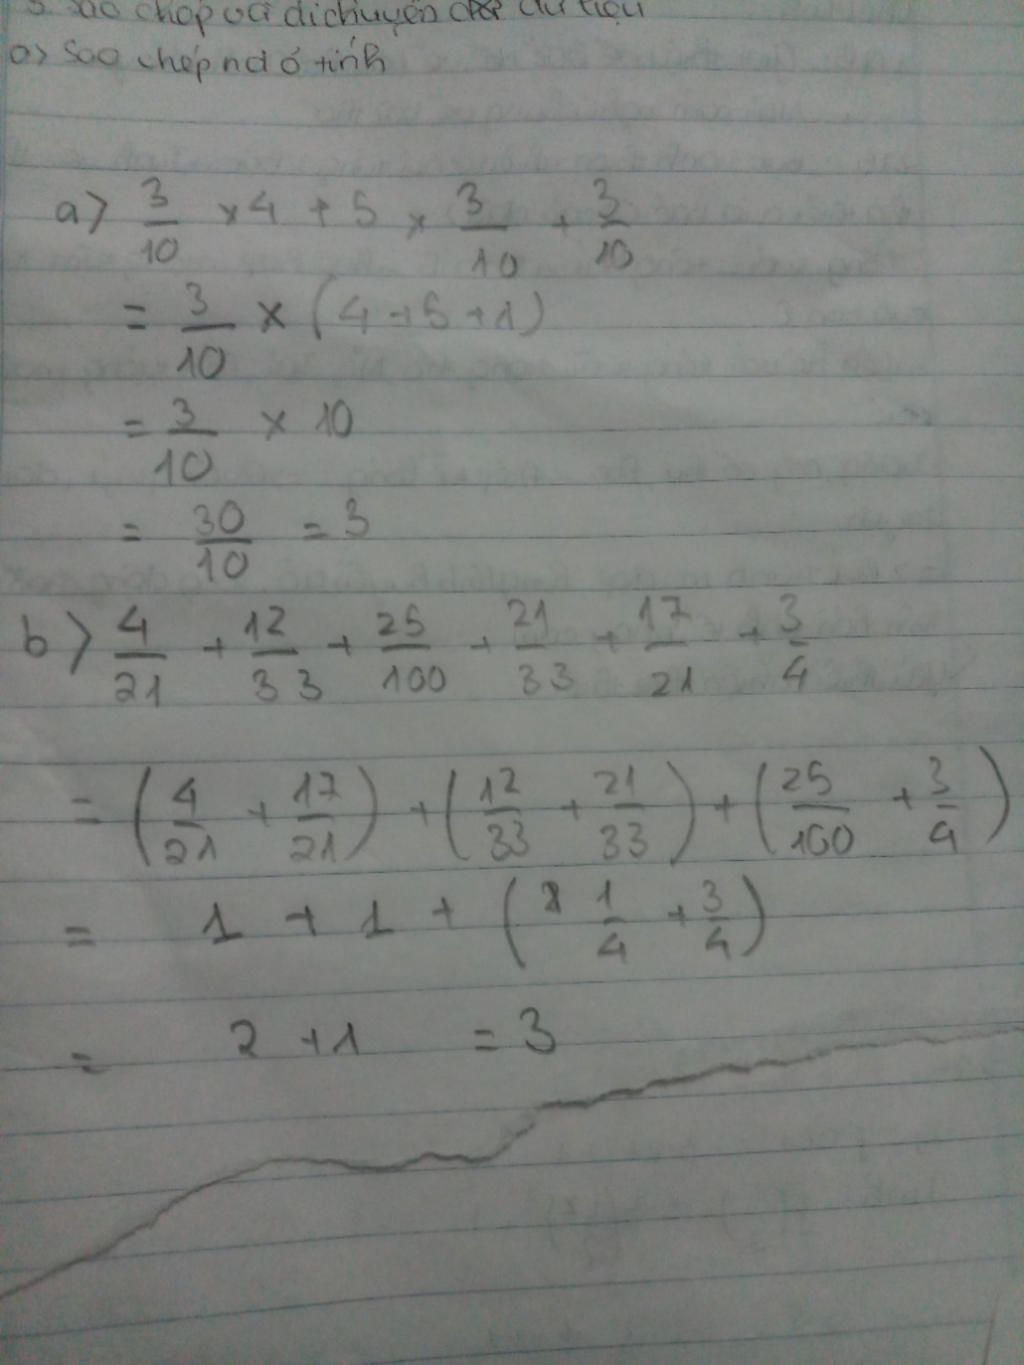 3. Sao chép và di chuyển dữ liệu
a> Sao chép nd ô tính
a> 3/10 × 4 + 5 × 3/10 + 3/10
= 3/10 × (4 + 5 + 1)
= 3/10 × 10
= 30/10 = 3
b> 4/21 + 12/33 + 25/100 + 21/33 + 17/21 + 3/4
= (4/21 + 17/21) + (12/33 + 21/33) + (25/100 + 3/4)
= 1 + 1 + (1/4 + 3/4)
= 2 + 1 = 3